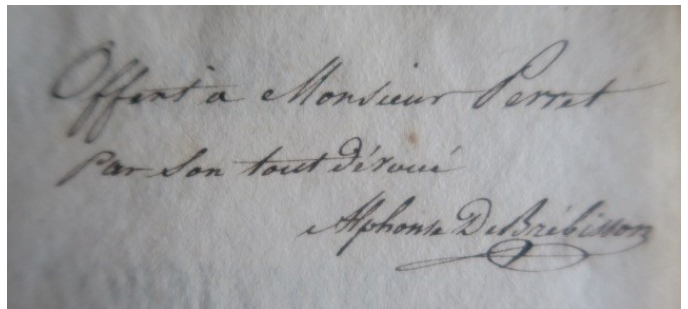 Offert à Monsieur Perret
Par Son tout dévoué
Alphonse De Brébisson